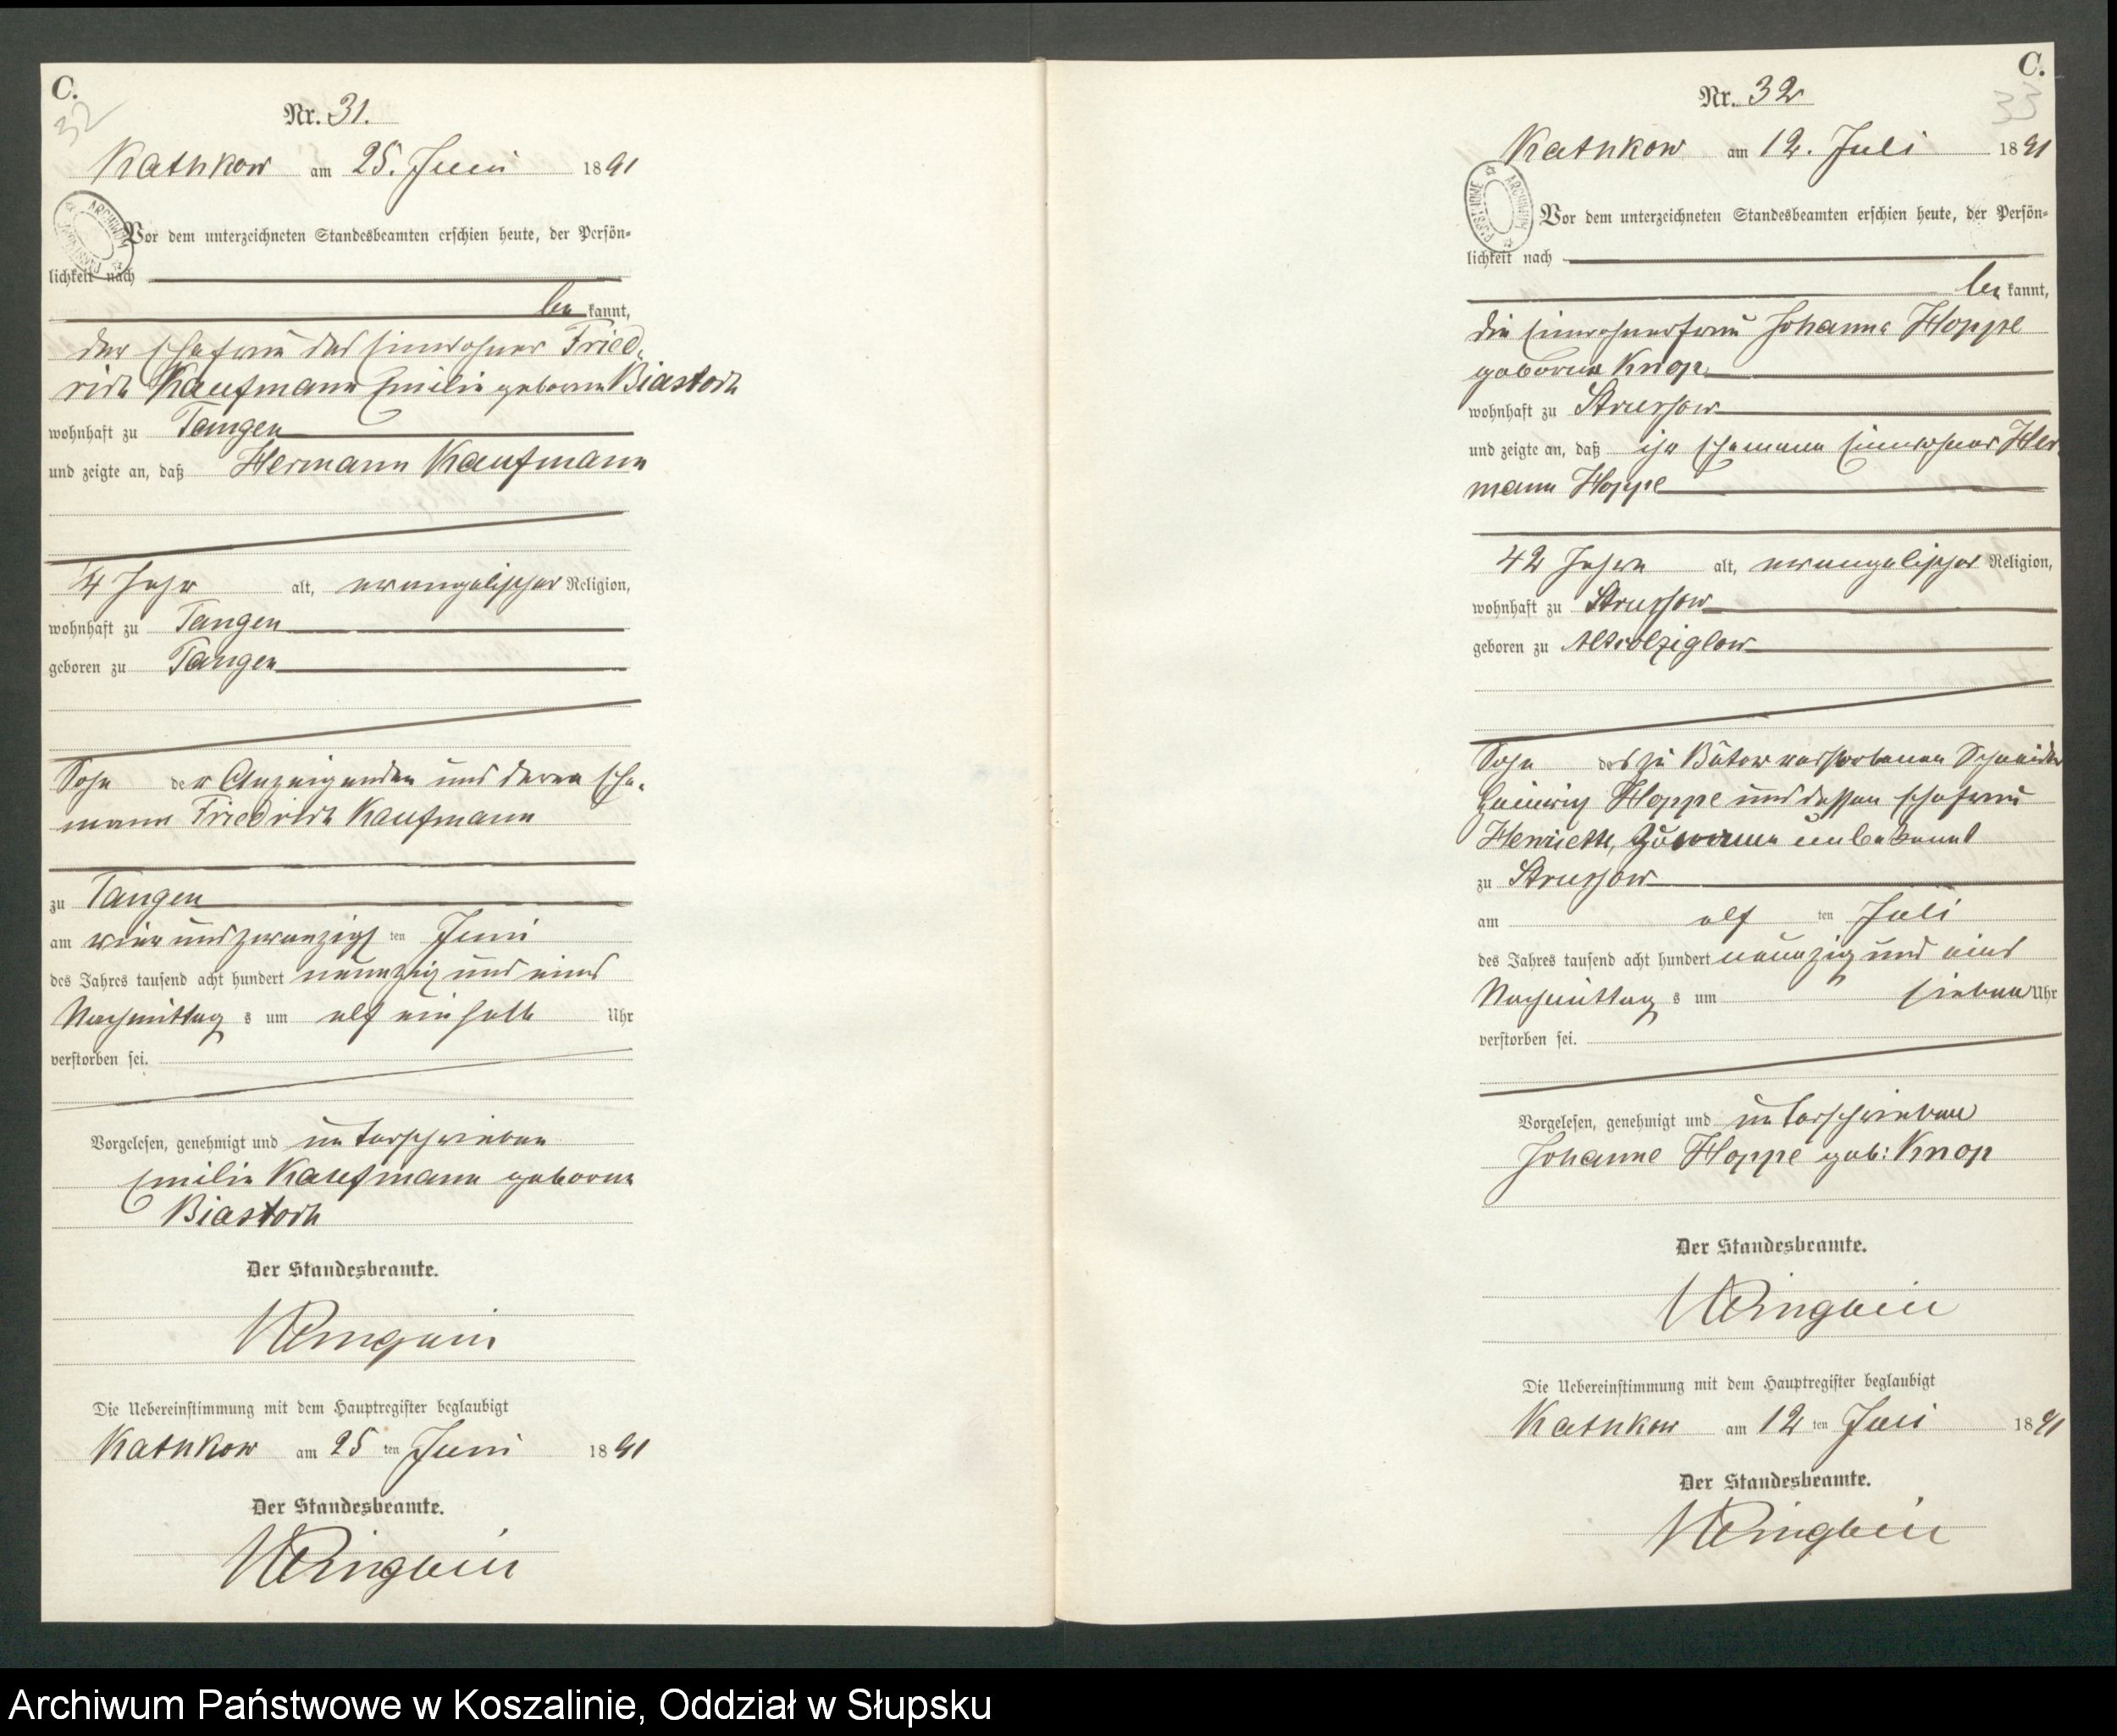 C.
32
Nr. 31.
Kathkow am 25. Juni 1891
Vor dem unterzeichneten Standesbeamten erschien heute, der Persön-
lichkeit nach
be kannt,
der Ehefrau des Einwohner Fried-
rich Kaufmann Emilie geborene Biastoch
wohnhaft zu Tangen
und zeigte an, daß Hermann Kaufmann
4 Jahr alt, evangelischer Religion,
wohnhaft zu Tangen
geboren zu Tangen
Sohn der Anzeigenden und deren Ehe-
mann Friedrich Kaufmann
zu Tangen
am vier und zwanzigst ten Juni
des Jahres tausend acht hundert neunzig und eins
Nachmittag s um elf ein halb Uhr
verstorben sei.
Vorgelesen, genehmigt und unterschrieben
Emilie Kaufmann geborne
Biastoch
Der Standesbeamte.
Die Uebereinstimmung mit dem Hauptregister beglaubigt
Kathkow am 25 ten Juni 1891
Der Standesbeamte.
C.
33
Nr. 32
Kathkow am 12. Juli 1891
Vor dem unterzeichneten Standesbeamten erschien heute, der Persön-
lichkeit nach
be kannt,
die Einwohnerfrau Johanne Hoppe
geborne Knop
wohnhaft zu Strussow
und zeigte an, daß ihr Ehemann Einwohner Her-
mann Hoppe
42 Jahre alt, evangelischer Religion,
wohnhaft zu Strussow
geboren zu Altkolziglow
Sohn des zu Bütow verstorbenen Schneider
Heinrich Hoppe und dessen Ehefrau
Henriette, Zuname unbekannt
zu Strussow
am elf ten Juli
des Jahres tausend acht hundert neunzig und eins
Nachmittag s um sieben Uhr
verstorben sei.
Vorgelesen, genehmigt und unterschrieben
Johanne Hoppe geb: Knop
Der Standesbeamte.
Die Uebereinstimmung mit dem Hauptregister beglaubigt
Kathkow am 12 ten Juli 1891
Der Standesbeamte.
Archiwum Państwowe w Koszalinie, Oddział w Słupsku